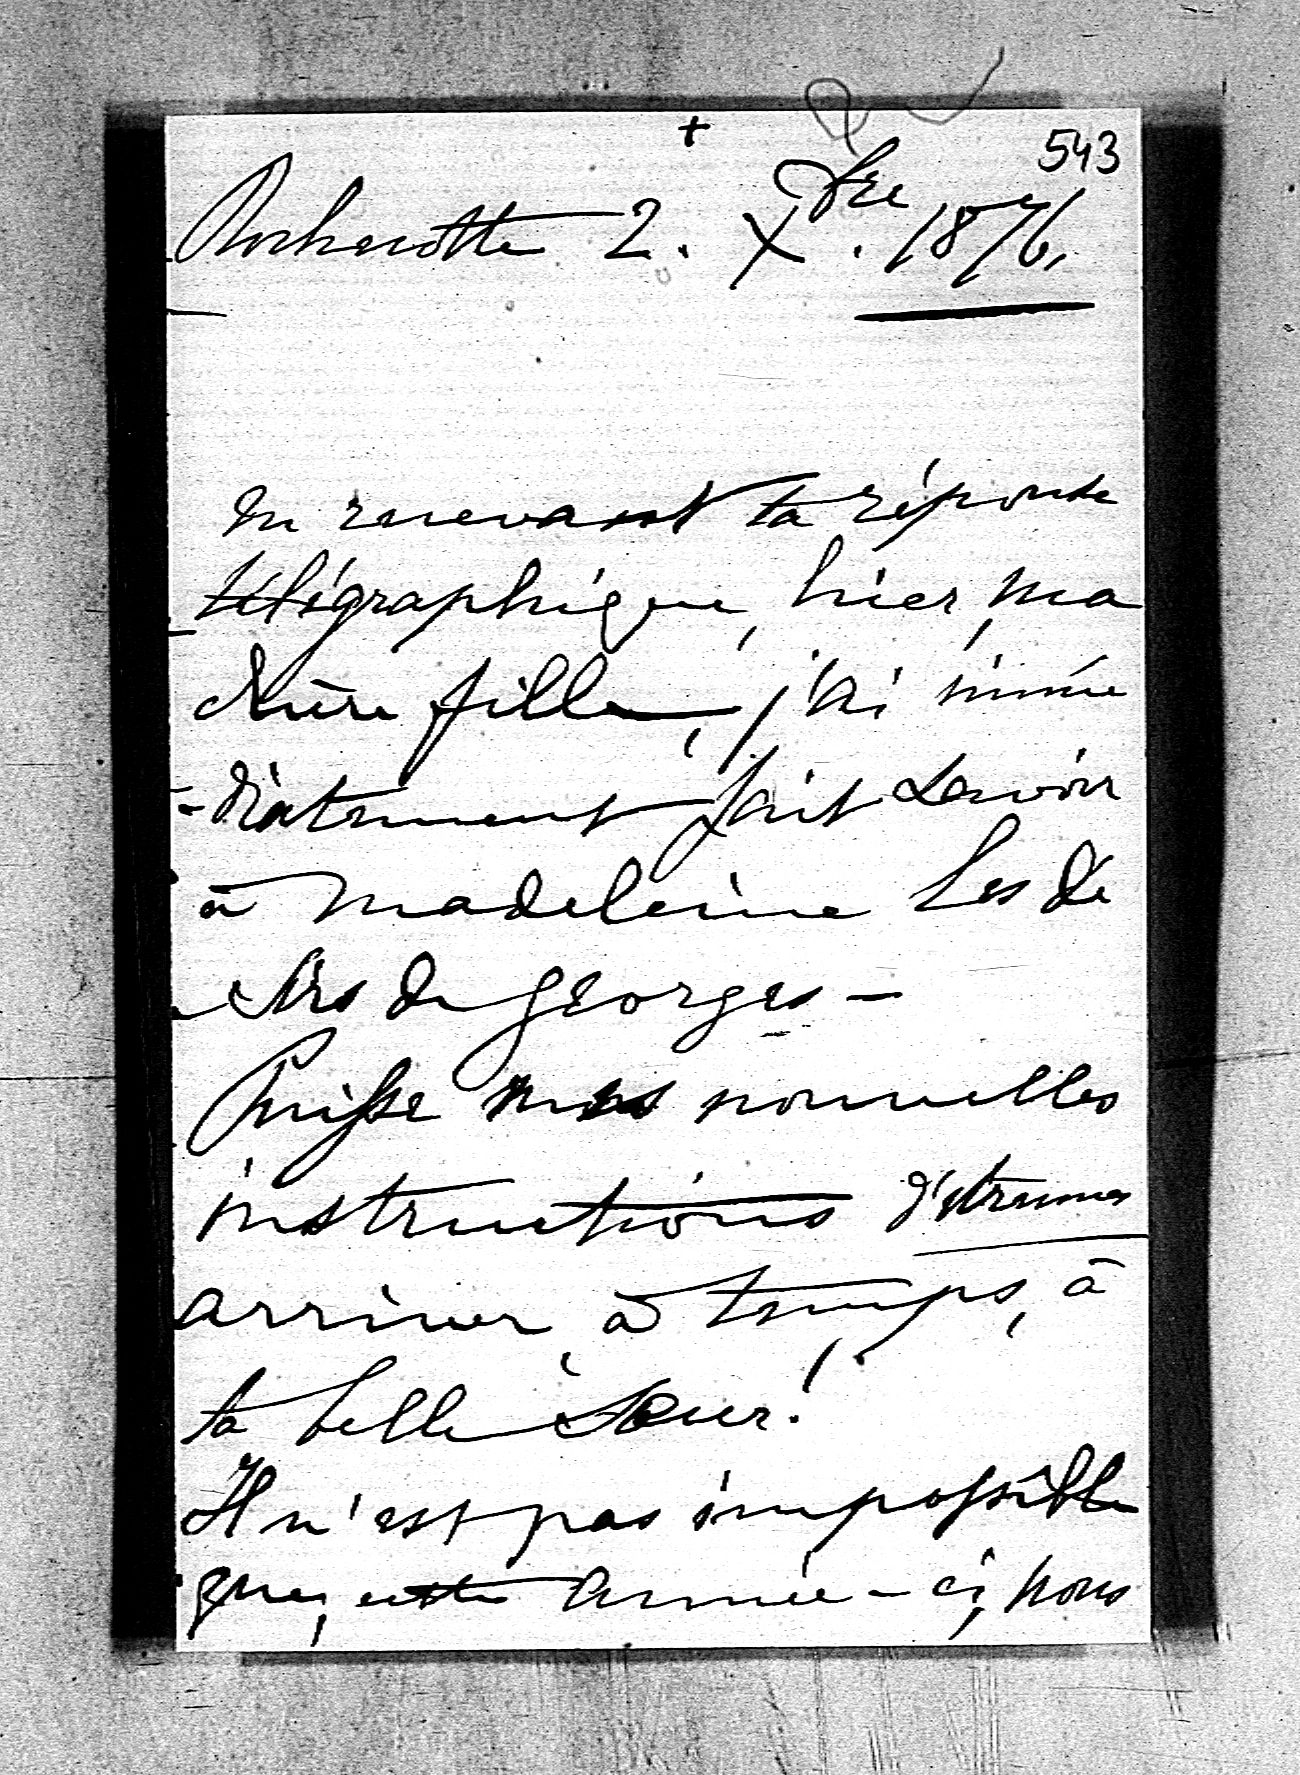 +
543
Rochecotte 2. Xbre. 1876,
En recevant ta réponse
télégraphique, hier, ma
chère fille, j'ai immé
-diatement fait savoir
à Madeleine les dé
sirs de Georges —
Puisse mes nouvelles
instructions d'étrennes
arriver, à temps, à
ta belle sœur!
Il n'est pas impossible
que, cette année-ci, nous